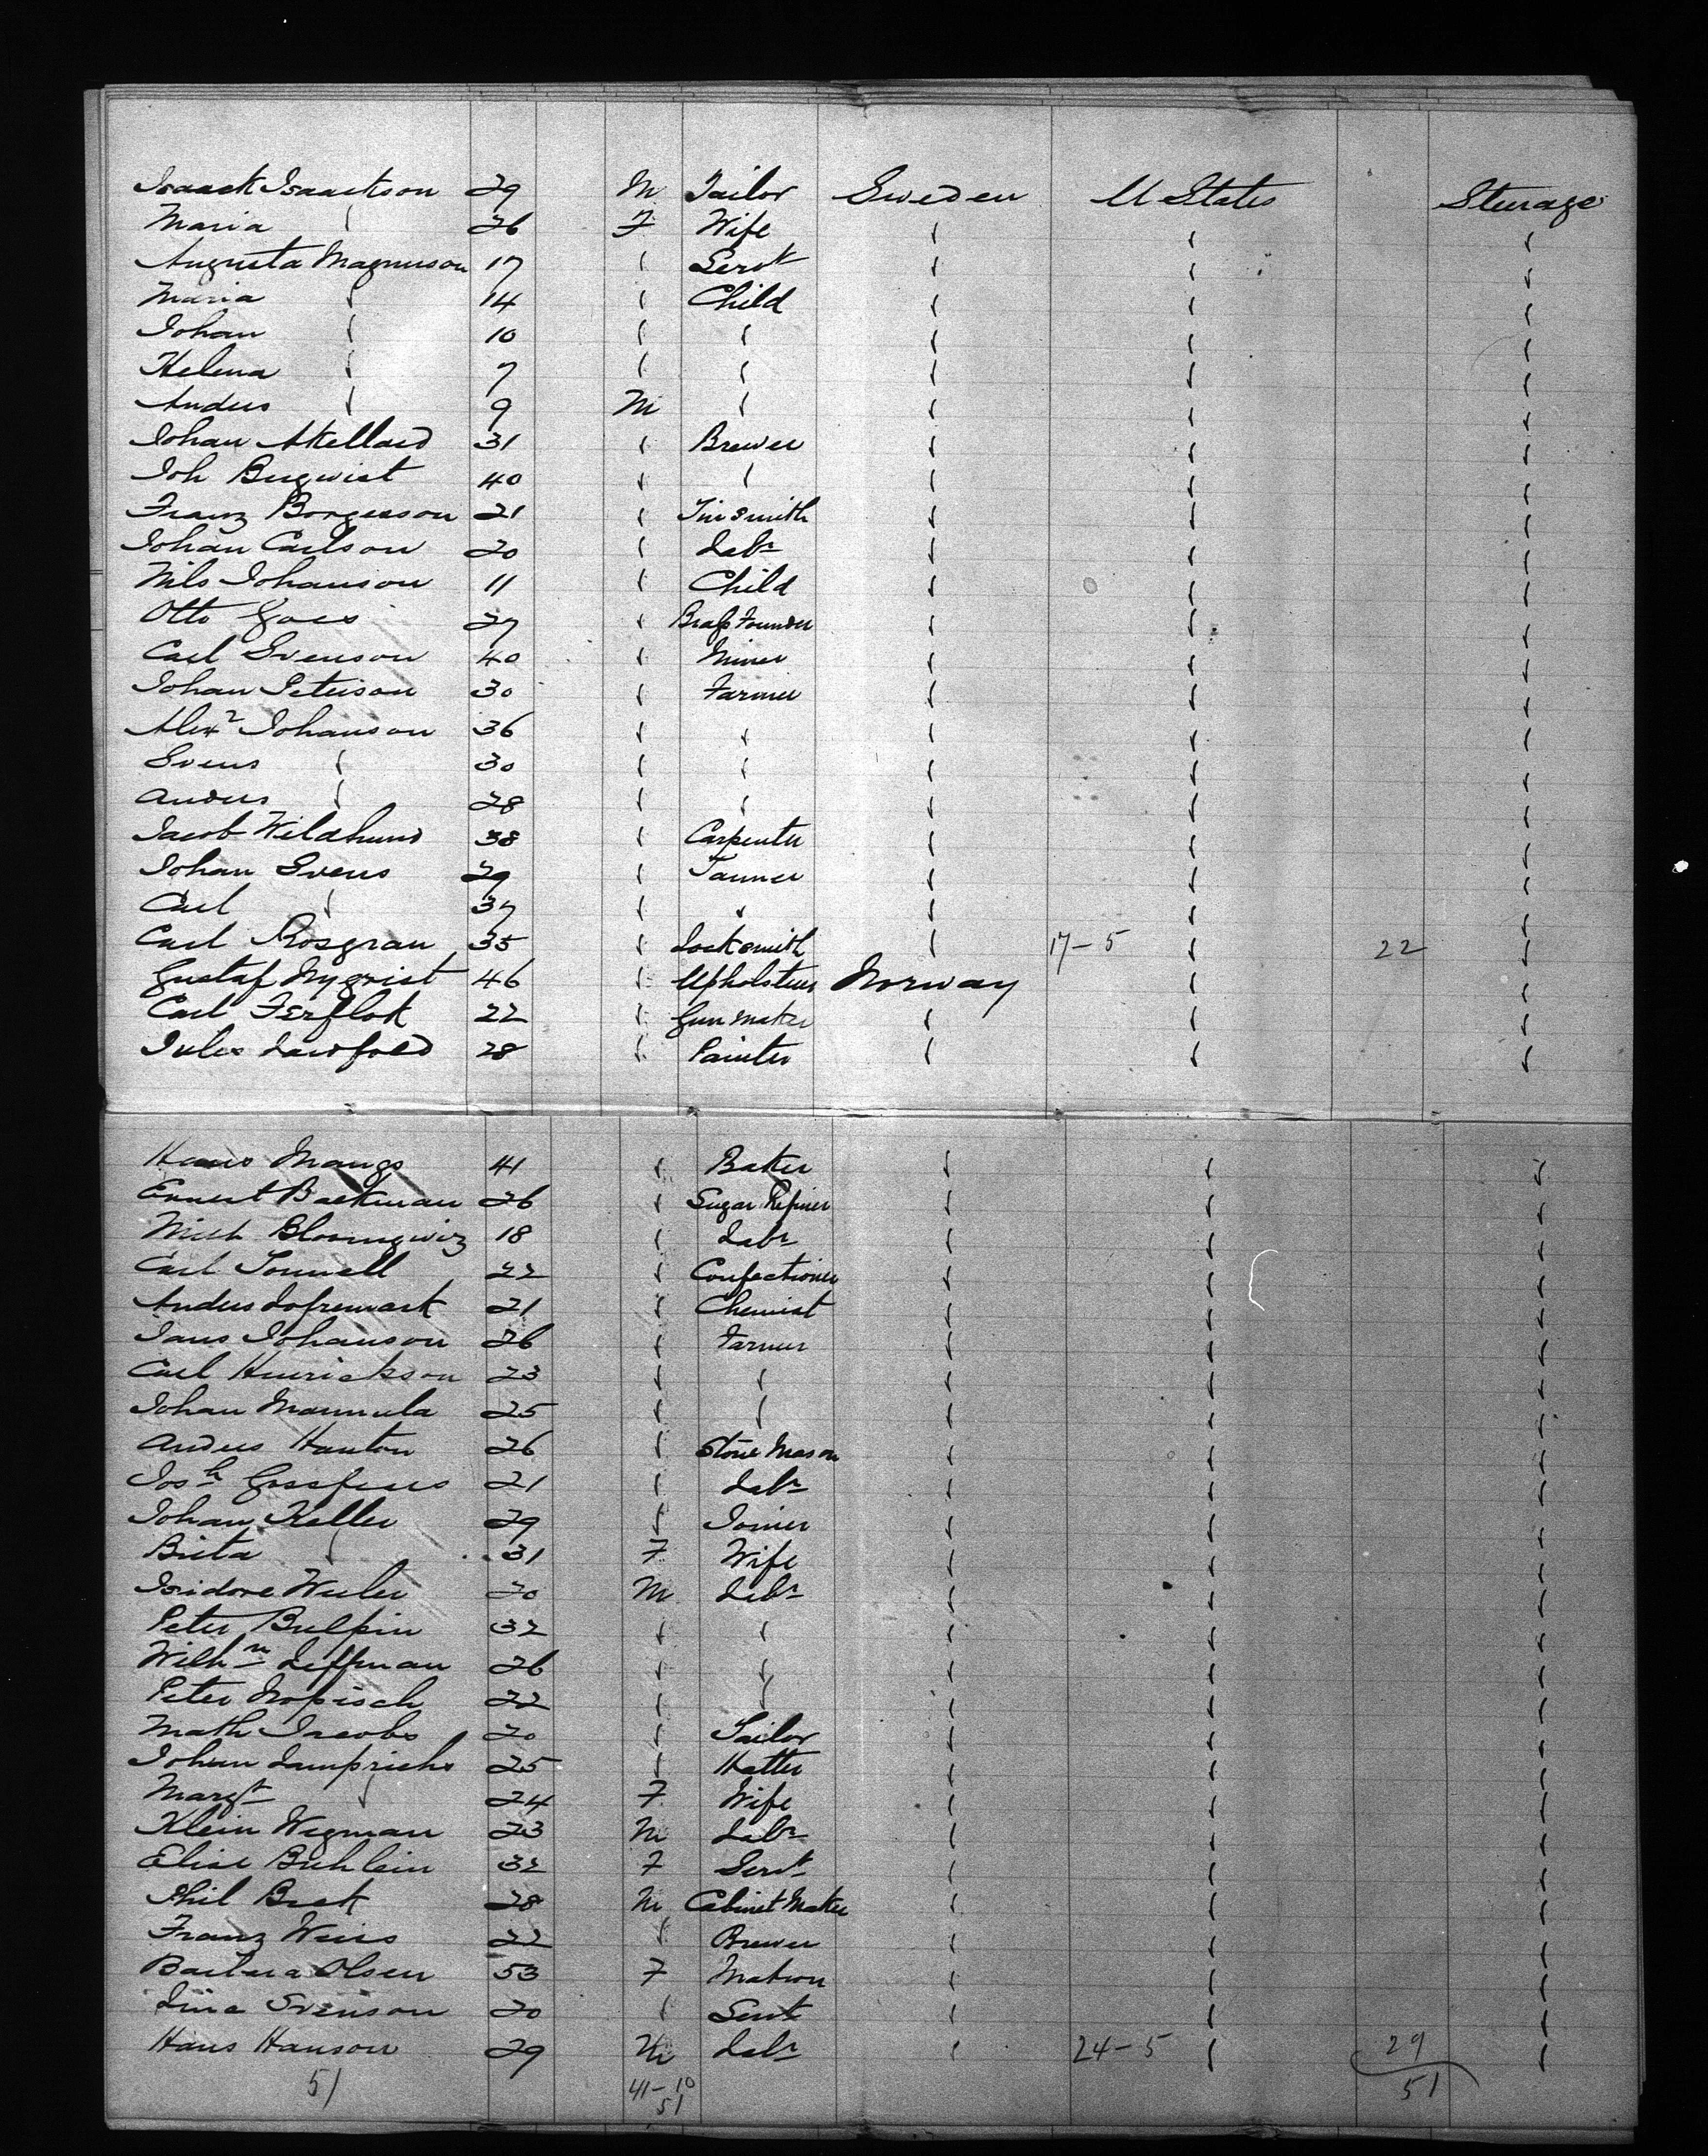 Isaack Isaackson 29 M Tailor Sweden U States Steerage
Maria " 26 F Wife " " "
Augusta Magnuson 17 " Servt " " "
Maria " 14 " Child " " "
Johan " 10 " " " " "
Helena " 7 " " " " "
Anders " 9 M " " " "
Johan Akellard 31 " Brewer " " "
Joh Bergwist 40 " " " " "
Franz Borgesson 21 " Tinsmith " " "
Johan Carlson 20 " Labr " " "
Nils Johanson 11 " Child " " "
Otto Goes 27 " Brass Founder " " "
Carl Svenson 40 " Miner " " "
Johan Peterson 30 " Farmer " " "
Alexr Johanson 36 " " " " "
Svens " 30 " " " " "
Anders " 28 " " " " "
Jacob Wildhund 38 " Carpenter " " "
Johan Svens 29 " Tanner " " "
Carl " 37 " " " " "
Carl Rosgran 35 " Locksmith " 17-5 " 22 "
Gustaf Nyqvist 46 " Upholsterer Norway " "
Carl Ferflok 22 " Gun Maker " " "
Jules Lawford 28 " Painter " " "
Hans Mangs 41 " Baker " " "
Ernest Backman 26 " Sugar Refiner " " "
Blomqwiz 18 " Labr " " "
Carl Tonnell 22 " Confectioner " " "
Anders Lofremark 21 " Chemist " " "
Jans Johanson 26 " Farmer " " "
Carl Henrickson 23 " " " " "
Johan Mannula 25 " " " " "
Anders Hanton 26 " Stone Mason " " "
Josh 21 " Labr " " "
Johan Keller 29 " Joiner " " "
Brita " 31 F Wife " " "
Isidore Weeler 20 M Labr " " "
Peter Bulpin 32 " " " " "
Wilhm Leffman 26 " " " " "
Peter Nopisch 22 " " " " "
Math Jacobs 20 " Tailor " " "
Johan Lamprichs 25 " Hatter " " "
Margt " 24 F Wife " " "
Klein Wegman 23 M Labr " " "
Elise Buhlein 32 F Servt " " "
Phil Beck 28 M Cabinet Maker " " "
Franz Weiss 22 " Brewer " " "
Barbara Olsen 53 F Matron " " "
Lina Svenson 20 " Servt " " "
Hans Hanson 29 M Labr " 24-5 " 29 "
51 41-10 51
51